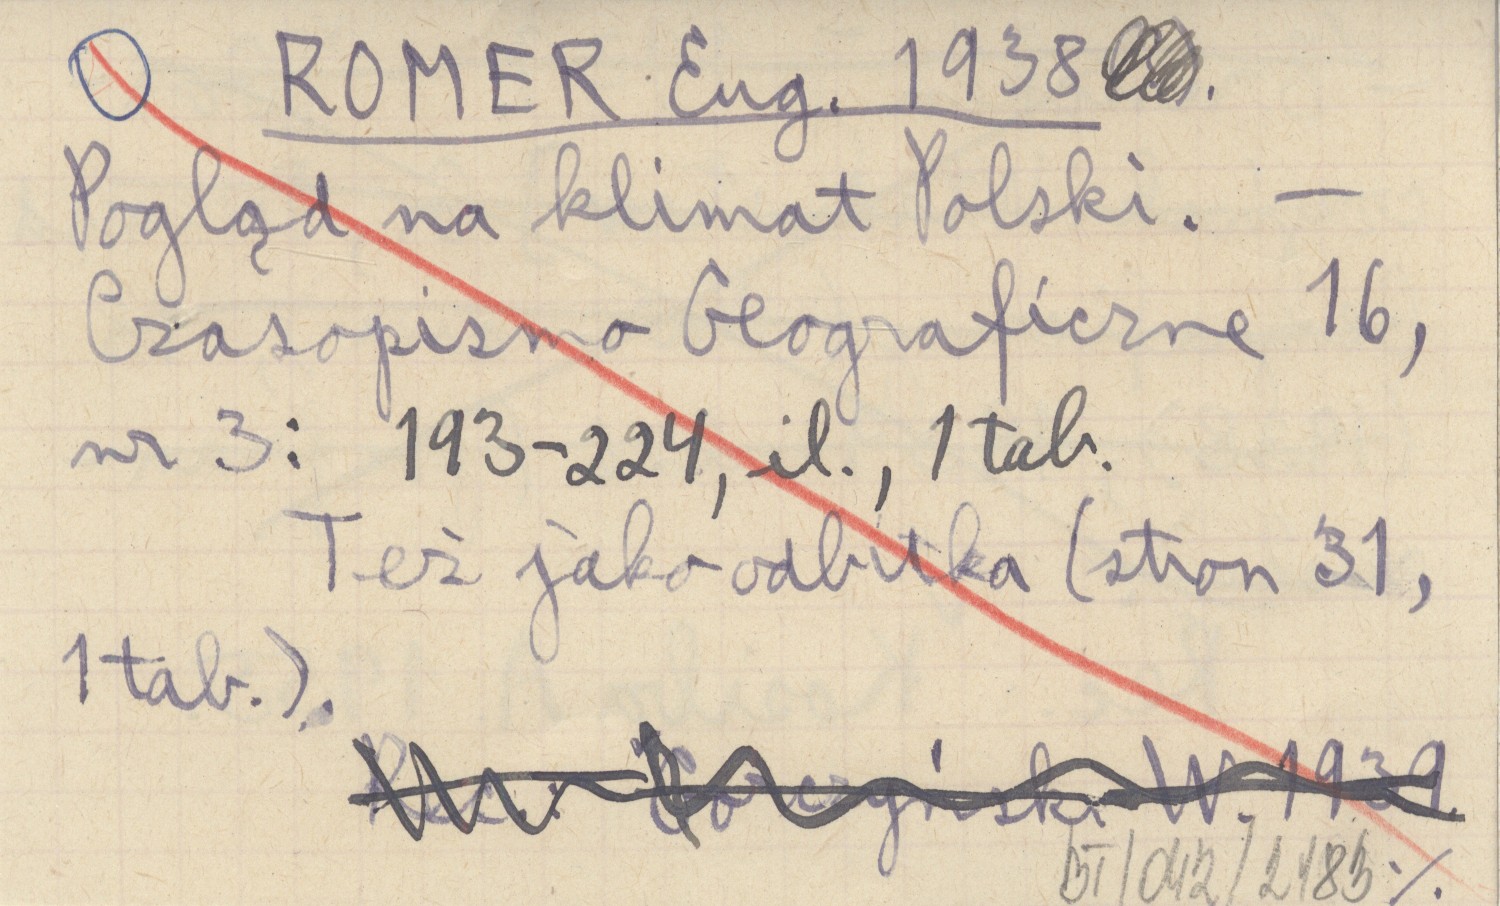 ROMER Eug. 1938.
Pogląd na klimat Polski. —
Czasopismo Geograficzne 16,
nr 3: 193-224, il., 1 tab.
Też jako odbitka (stron 31,
1 tab.).
Rec.: Gorczyński W. 1939.
BI/042/2183 ·/.